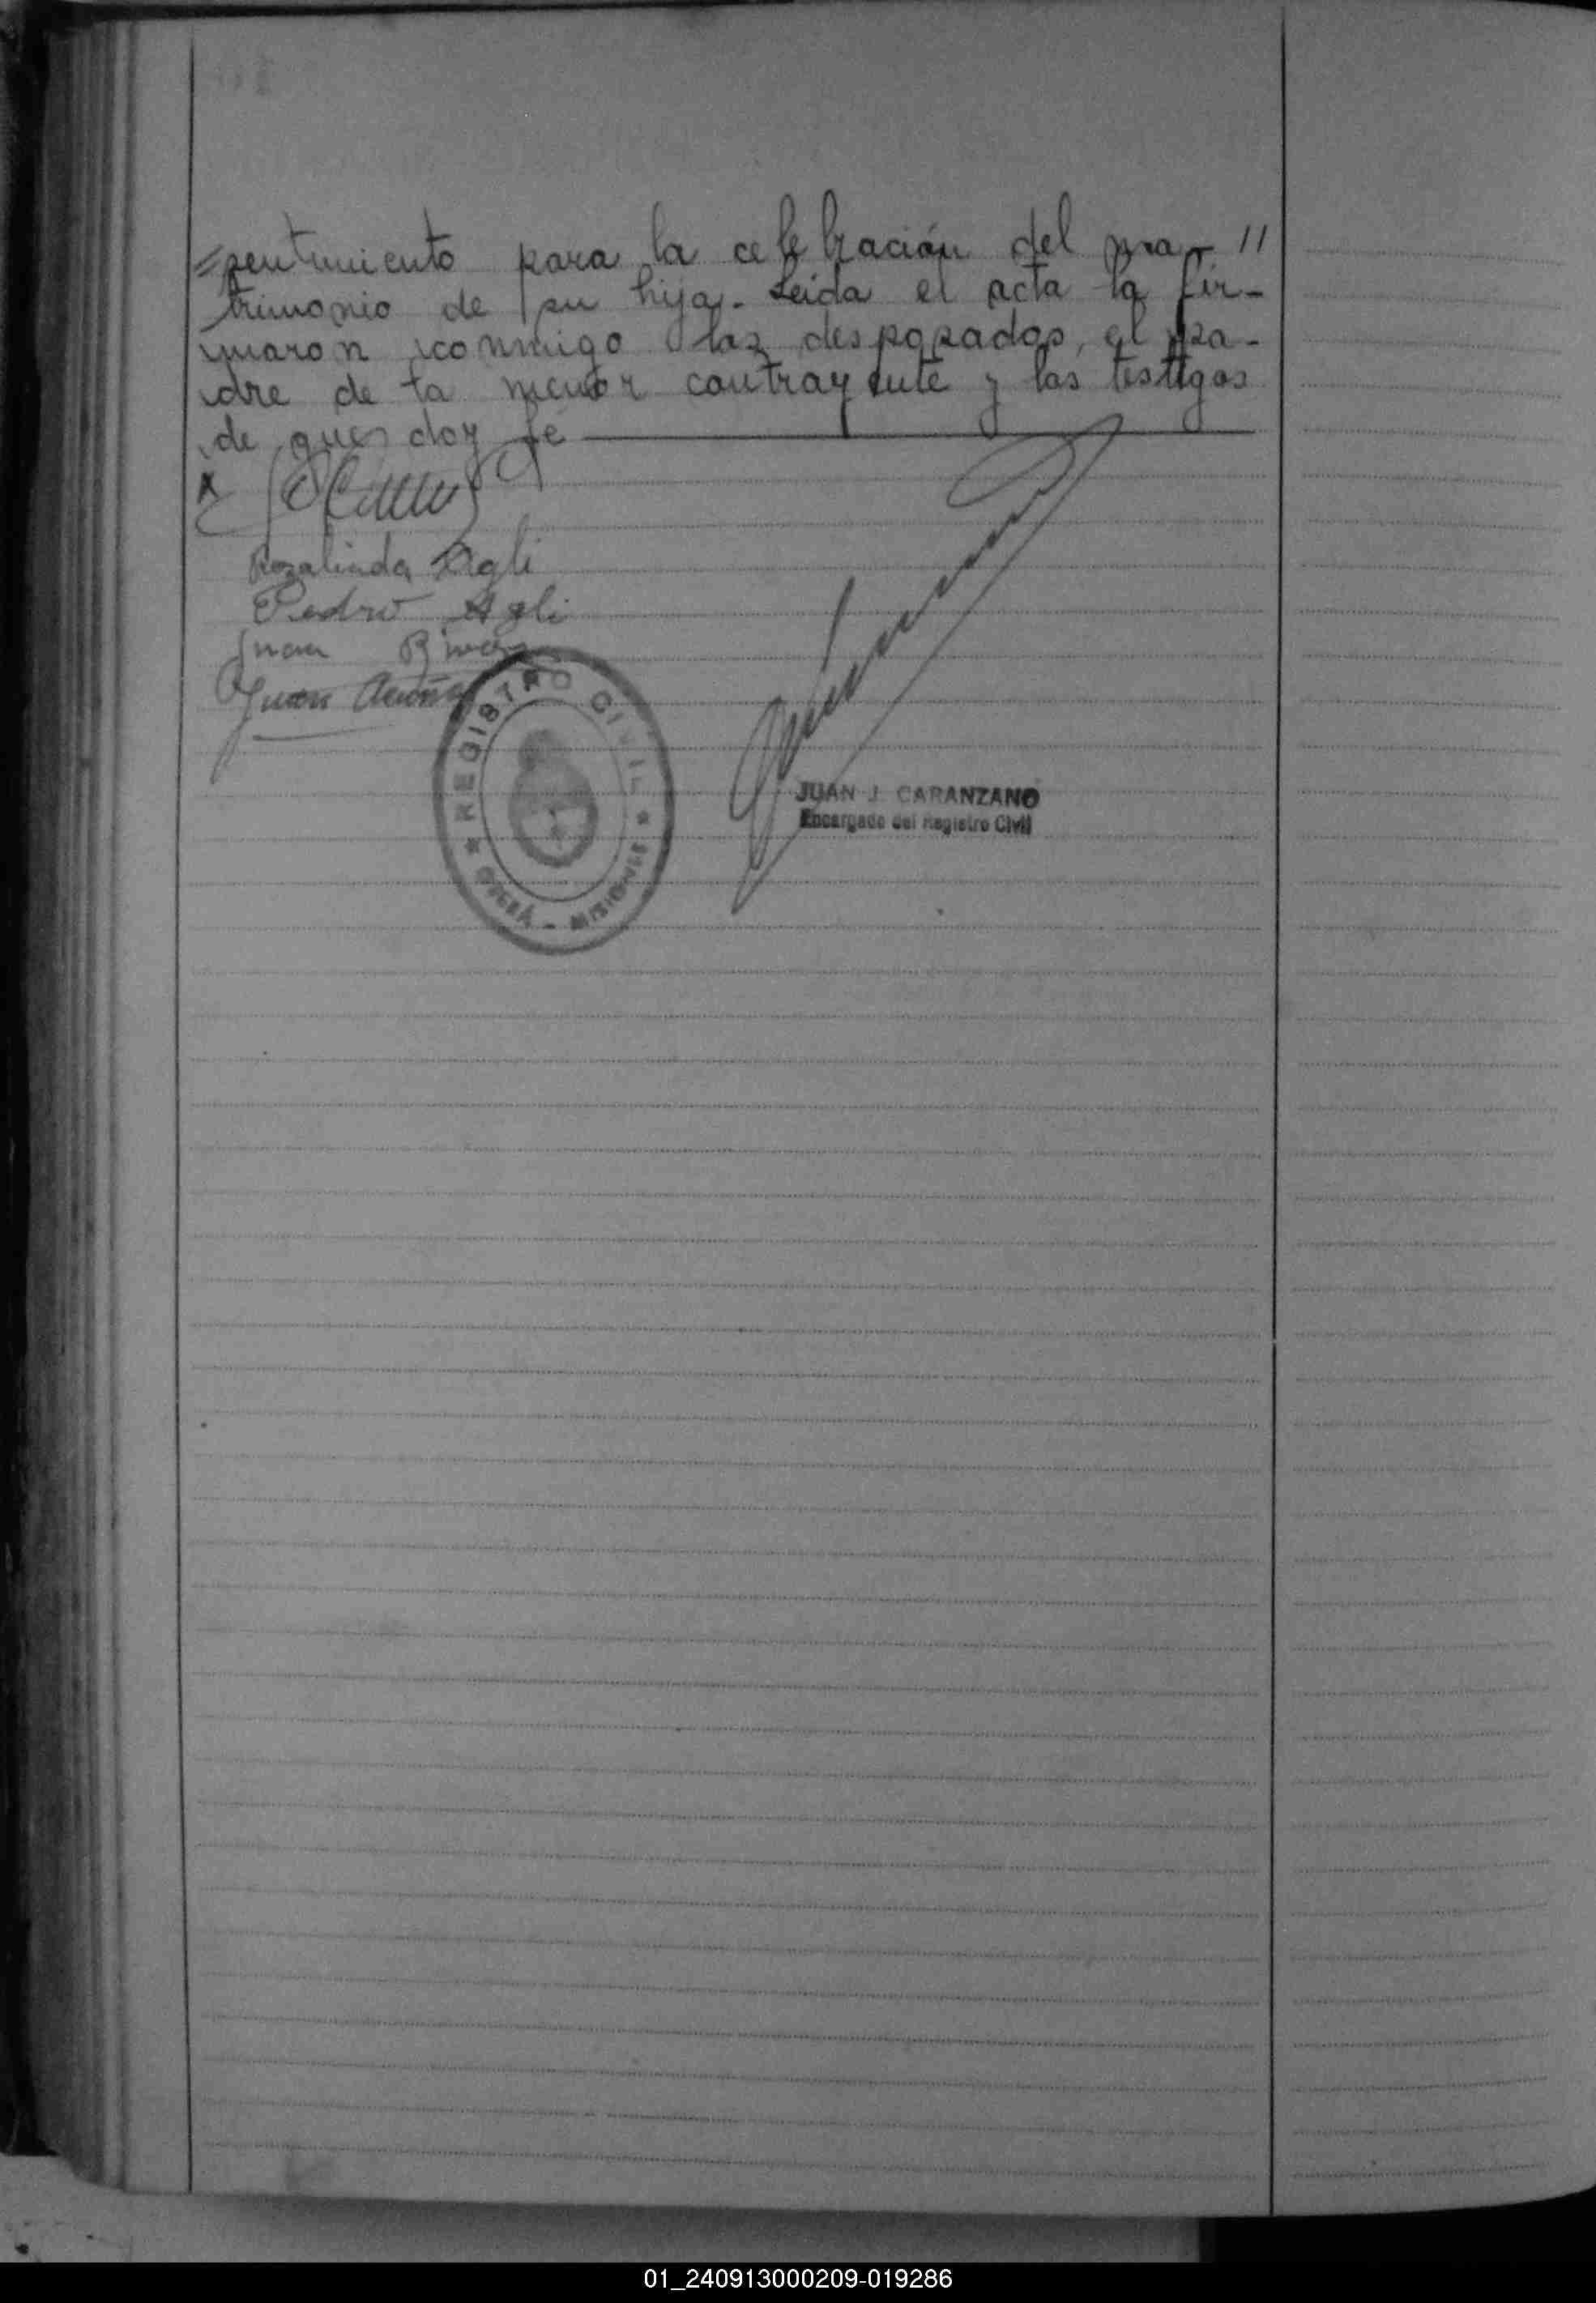 =sentimiento para la celebración del ma- //
trimonio de su hija.- Leida el acta la fir-
maron conmigo los desposados, el pa-
dre de la menor contrayente y los testigos
de que doy fe
Rozalinda Agli
Pedro Agli
Juan
Juan Acuña
REGISTRO CIVIL
OBERÁ - MISIONES
JUAN J. CARANZANO
Encargado del Registro Civil
01_240913000209-019286